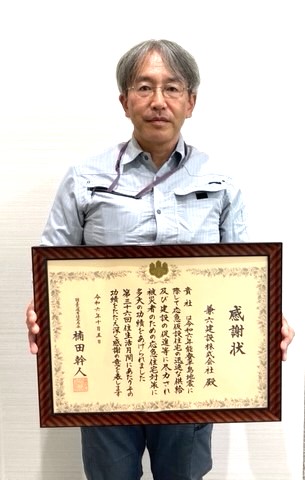 感謝状
兼六建設株式会社 殿
貴社は令和六年能登半島地震に
際して応急仮設住宅の迅速な供給
及び建設の促進等に尽力され
被災者のための応急住宅対策に
多大の功績をあげられました
第三十六回住生活月間にあたりその
功績をたたえ深く感謝の意を表します
令和六年十月五日
楠田幹人